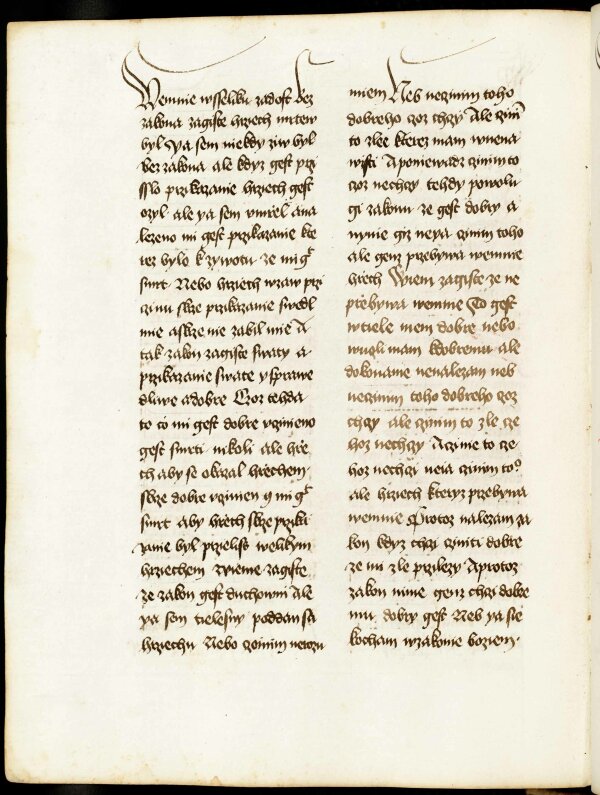 Wemnie wsseliku zadost bez
zakona zagiste hrziech mrtew
byl Ya sem niekdy ziw byl
bez zakona ale kdyz gest przi
sslo przikazanie hrziech gest
ozyl ale ya sem vmrzel ana
lezeno mi gest przikazanie kte
rez bylo k zywotu ze mi gest
smrt Nebo hrziech wzaw przi
czinu skrze przikazanie swedl
mie askrze nie zabil mie A
tak zakon zagiste swaty a
przikazanie swate ysprawe
dlave adobre Czoz tehda
to czo mi gest dobre vczineno
gest smrti nikoli ale hrze
ch aby se okazal hrzechem
skrze dobre vczinen gt mi gest
smrt aby hrzech skrze przika
zanie byl przielisst welikym
hrziechem zwieme zagiste
ze zakon gest duchowni Ale
ya sem tielesny poddan sa
hrziechu Nebo czoczinim nerozu
miem Neb neczinim toho
dobreho czoz chczy Ale czinim
to zlee kterez mam wnena
wisti A poniewadz czinim to
czoz nechczy tehdy powolu
gi zakonu ze gest dobry A
nynie giz neya czinim toho
ale genz przebywa wemnie
hrzech Wiem zagiste ze ne
przebywa wemnie To gest
wtiele mem dobre nebo
wuoli mam kdobremu ale
dokonanie nenalezam neb
neczinim toho dobreho czoz
chczy ale czinim to zle cze
hoz nechczy Aczinie to cze
hoz nechczi neia czinim toho
ale hrziech kteryz przebywa
wemnie Protoz nalezam za
kon kdyz chczi cziniti dobre
ze mi zle przilezy Aprotoz
zakon mnie genz chczi dobre
mu dobry gest Neb ya sie
kocham wzakonie boziem